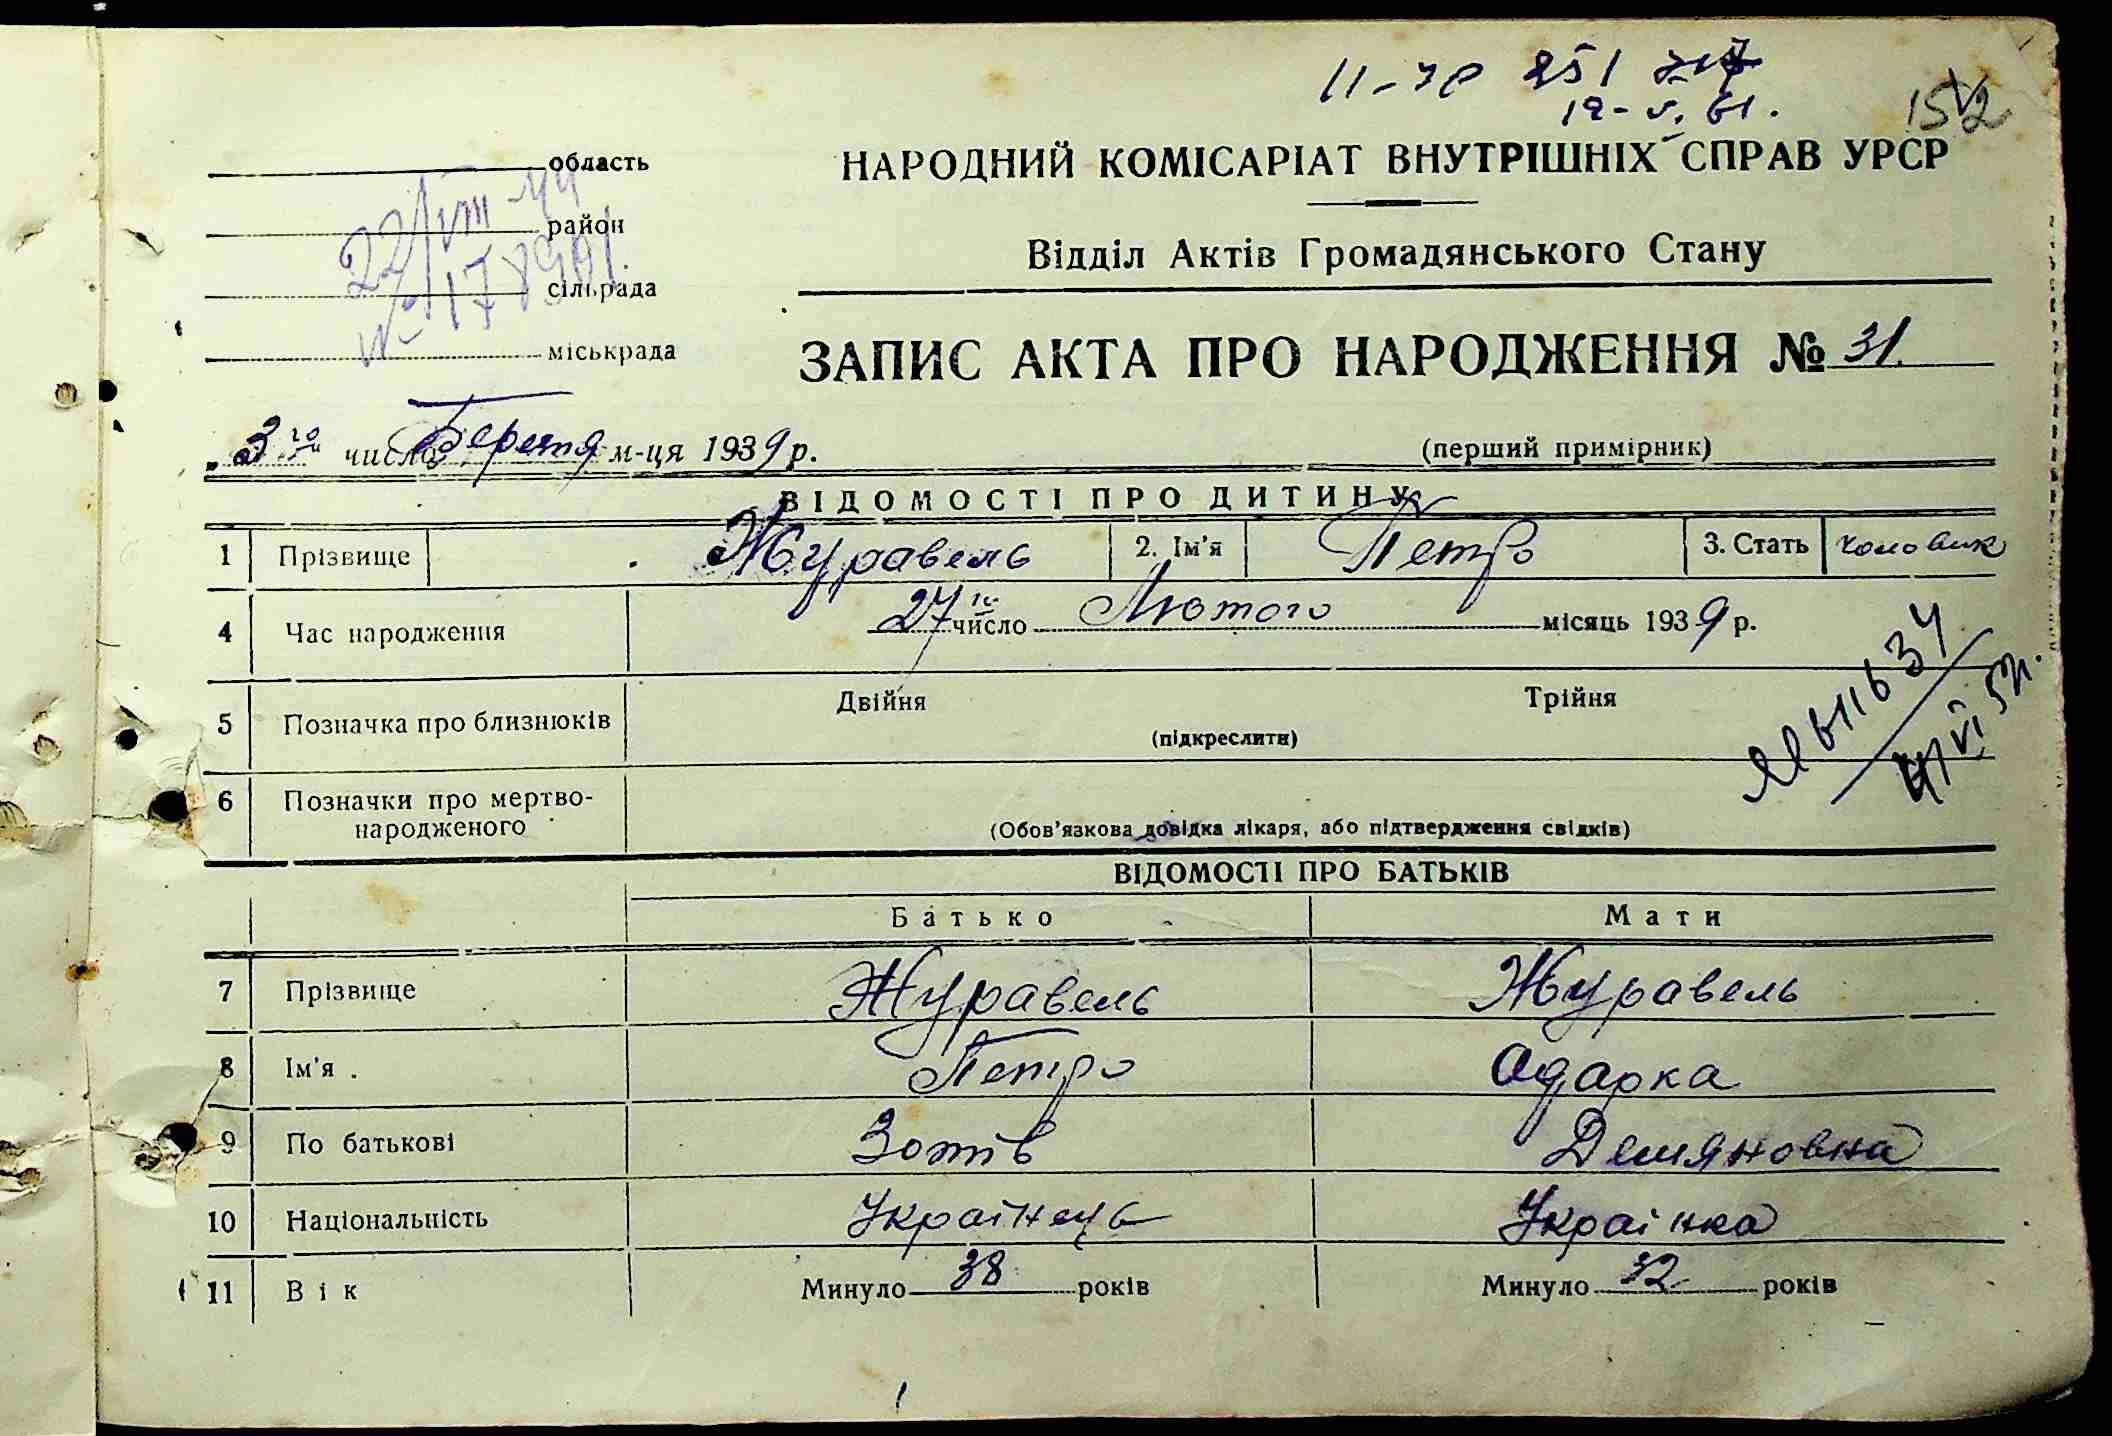 II-ЯР 251 717
12-V. 61.
152
область
22/VIII 44
район
сільрада
міськрада
НАРОДНИЙ КОМІСАРІАТ ВНУТРІШНІХ СПРАВ УРСР
Відділ Актів Громадянського Стану
ЗАПИС АКТА ПРО НАРОДЖЕННЯ № 31.
„3го" число Березня м-ця 1939 р.
(перший примірник)
ВІДОМОСТІ ПРО ДИТИНУ
1 Прізвище Журавель 2. Ім'я Петро 3. Стать чоловік
4 Час народження 27го число Лютого місяць 1939 р.
5 Позначка про близнюків Двійня Трійня
(підкреслити)
6 Позначки про мертво-
народженого
(Обов'язкова довідка лікаря, або підтвердження свідків)
ВІДОМОСТІ ПРО БАТЬКІВ
Батько Мати
7 Прізвище Журавель Журавель
8 Ім'я Петро Одарка
9 По батькові Зотів Демяновна
10 Національність Українець Українка
11 Вік Минуло 38 років Минуло 32 років